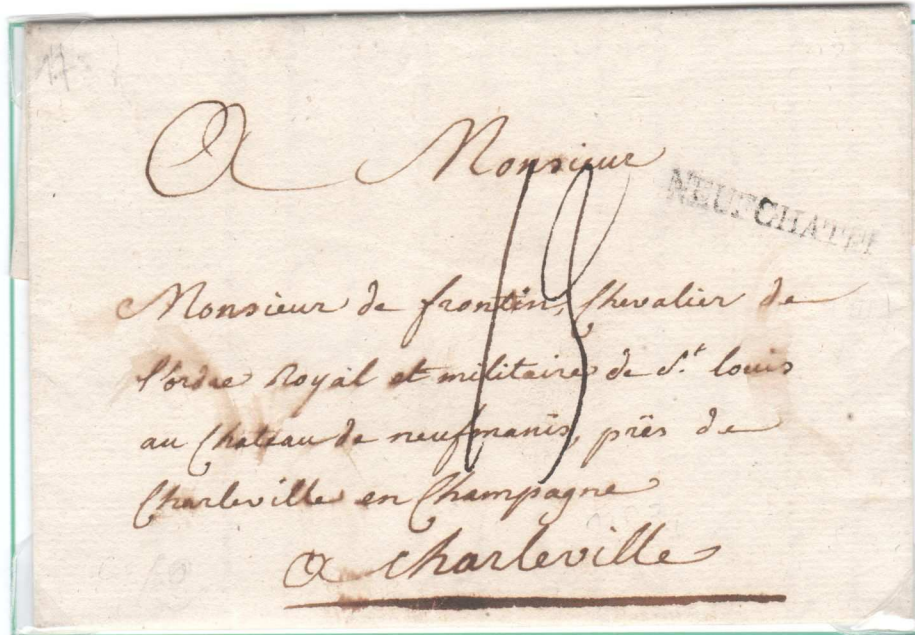 A Monsieur
NEUFCHATEL
13
Monsieur de frontin, Chevalier de
l'ordre Royal et militaire de St. louis
au Chateau de neufmanis, près de
Charleville en Champagne
a Charleville